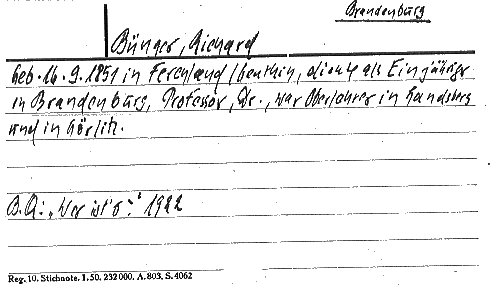 Brandenburg
Bünger, Richard
geb. 16. 9. 1851 in Ferchland/Genthin, diente als Einjähriger
in Brandenburg, Professor, Dr., war Oberlehrer in Landsberg
und in Görlitz.
B.Q.: „Wer ist's?" 1922
Reg. 10. Stichnote. 1. 50. 232000. A. 803. S. 4062